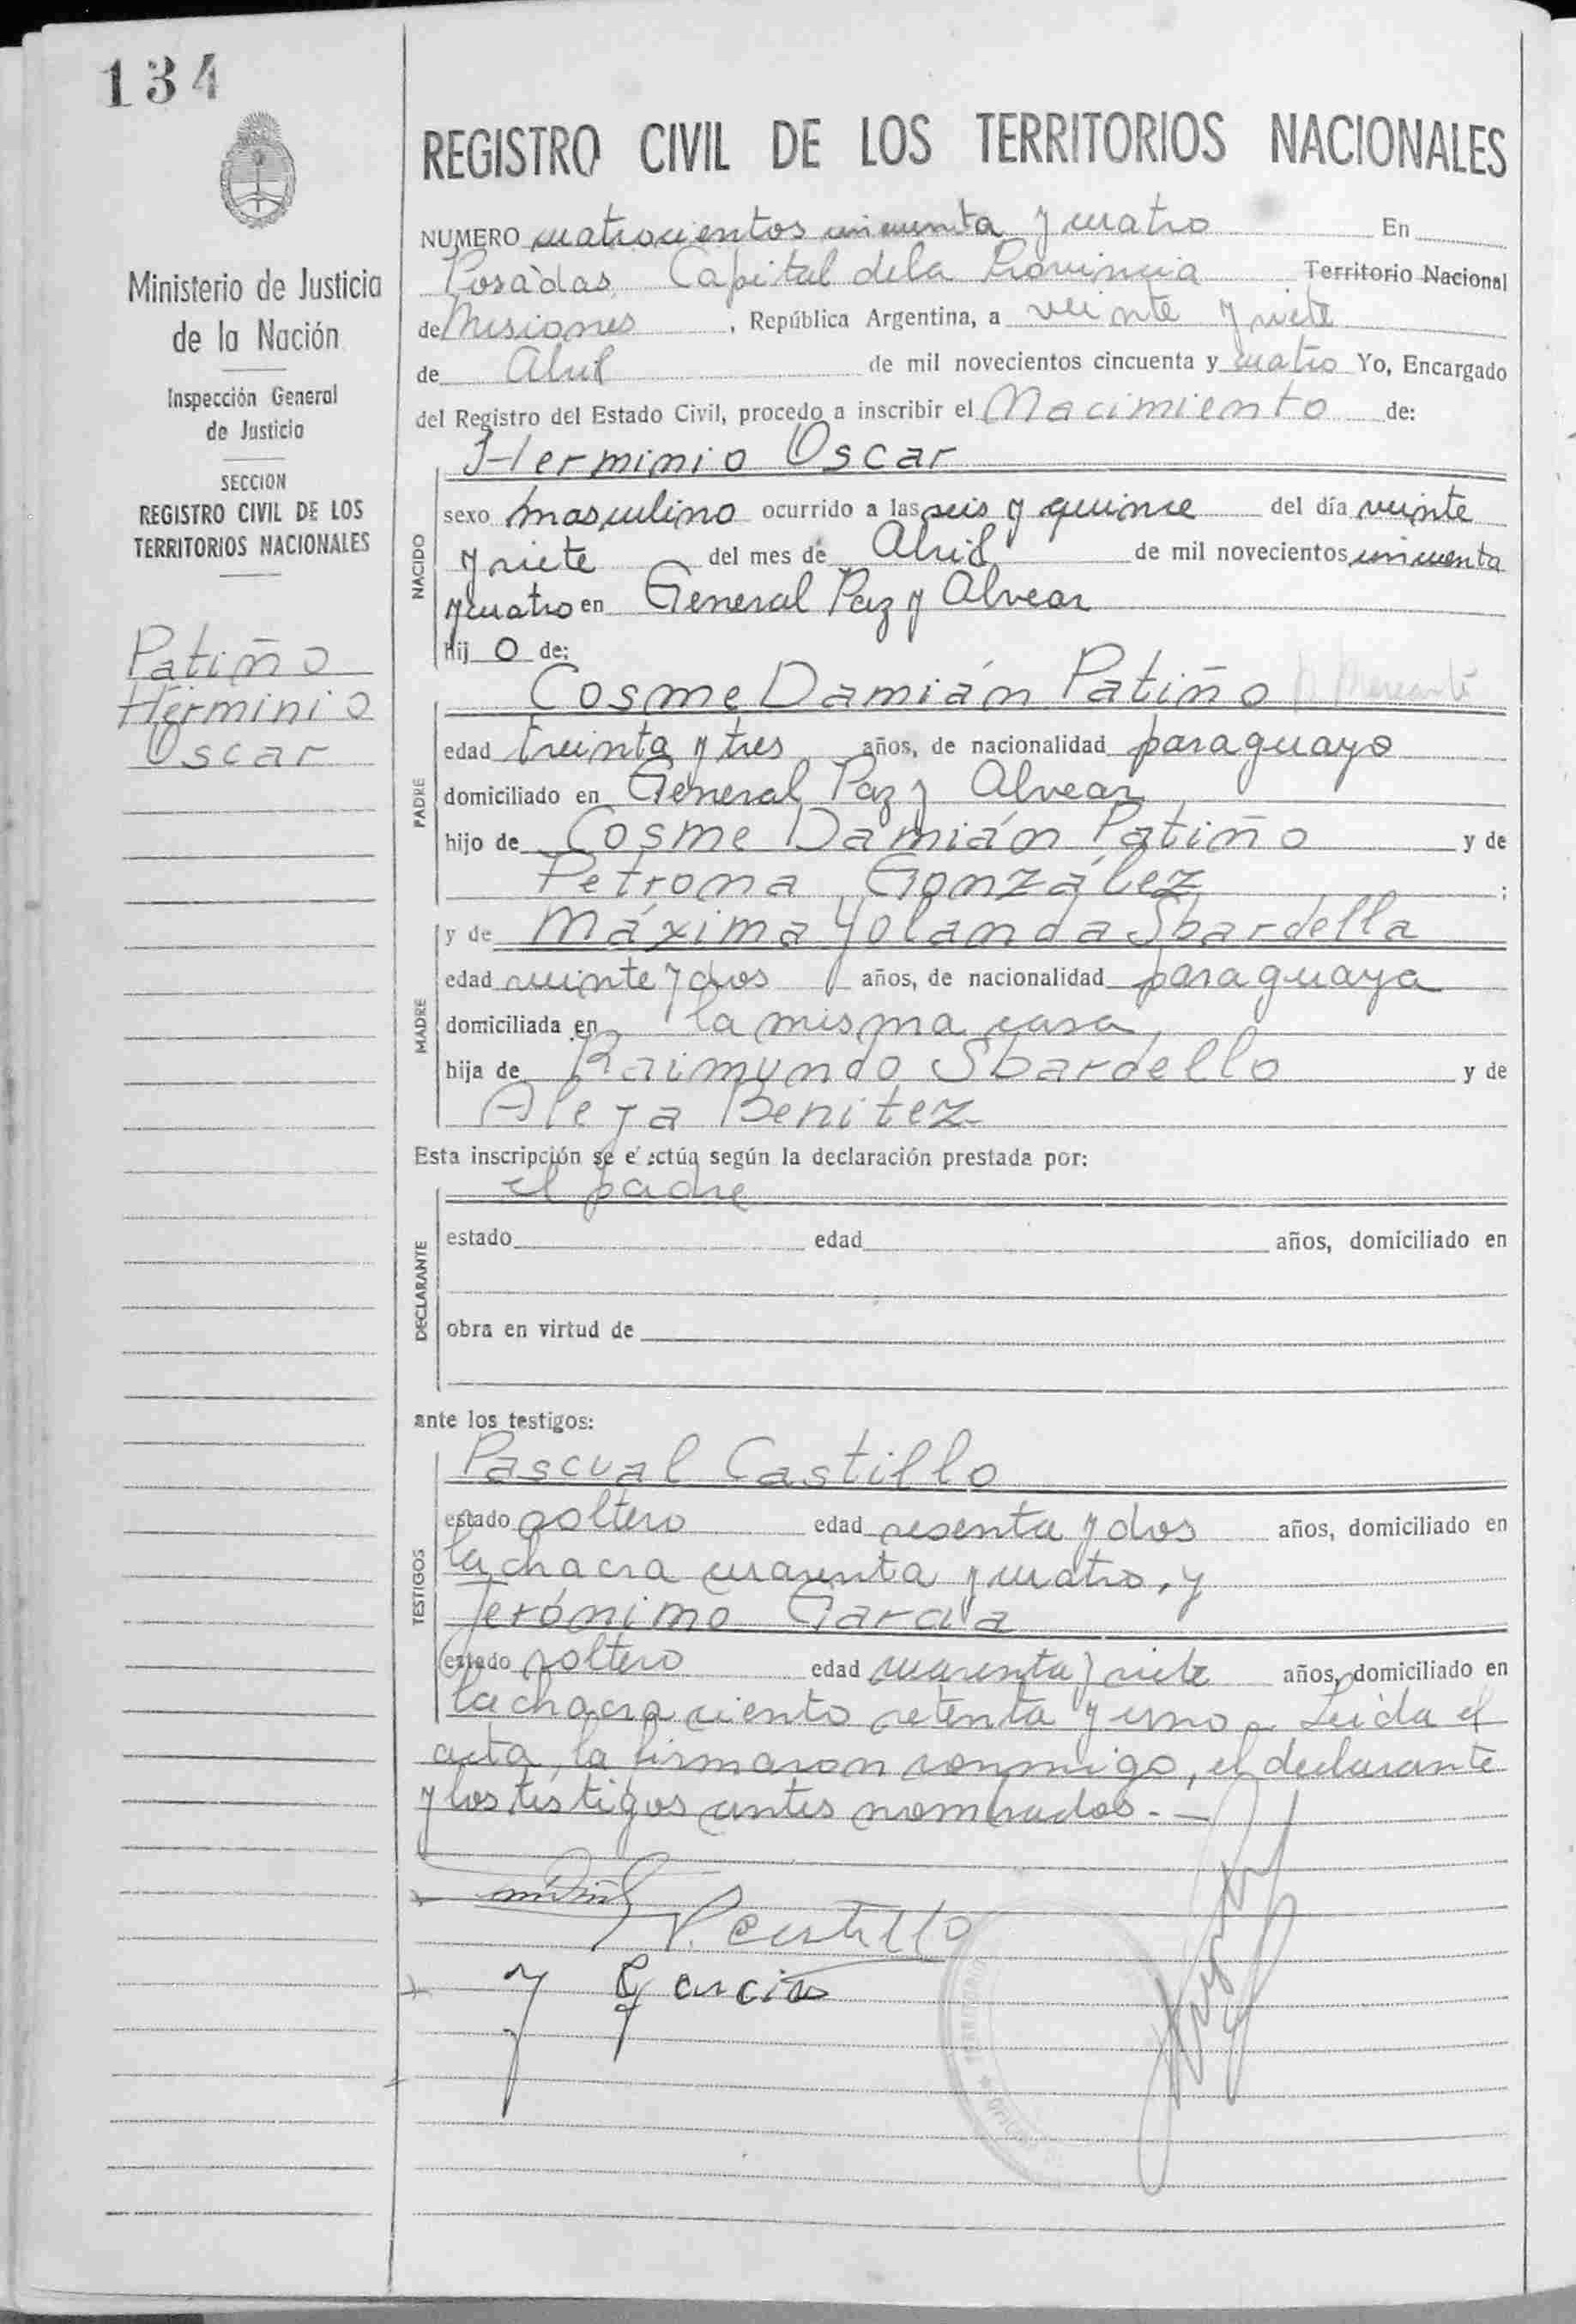 134
Ministerio de Justicia
de la Nación
Inspección General
de Justicia
SECCION
REGISTRO CIVIL DE LOS
TERRITORIOS NACIONALES
Patiño
Herminio
Oscar
REGISTRO CIVIL DE LOS TERRITORIOS NACIONALES
NUMERO cuatrocientos cincuenta y cuatro En
Posadas Capital de la Provincia Territorio Nacional
de Misiones, República Argentina, a veinte y siete
de Abril de mil novecientos cincuenta y cuatro Yo, Encargado
del Registro del Estado Civil, procedo a inscribir el Nacimiento de:
Herminio Oscar
NACIDO
sexo masculino ocurrido a las seis y quince del día veinte
y siete del mes de Abril de mil novecientos cincuenta
y cuatro en General Paz y Alvear
hijo de:
Cosme Damián Patiño
PADRE
edad treinta y tres años, de nacionalidad paraguayo
domiciliado en General Paz y Alvear
hijo de Cosme Damián Patiño y de
Petrona González ;
y de Máxima Yolanda Sbardella
MADRE
edad veinte y dos años, de nacionalidad paraguaya
domiciliada en la misma casa,
hija de Raimundo Sbardello y de
Aleja Benitez
Esta inscripción se efectúa según la declaración prestada por:
el padre
DECLARANTE
estado edad años, domiciliado en
obra en virtud de
ante los testigos:
Pascual Castillo
TESTIGOS
estado soltero edad sesenta y dos años, domiciliado en
la chacra cuarenta y cuatro, y
Jerónimo Garcia
estado soltero edad cuarenta y siete años, domiciliado en
la chacra ciento setenta y uno. Leida el
acta, la firmaron conmigo, el declarante
y los testigos antes nombrados. —
P. Castillo
J Garcia